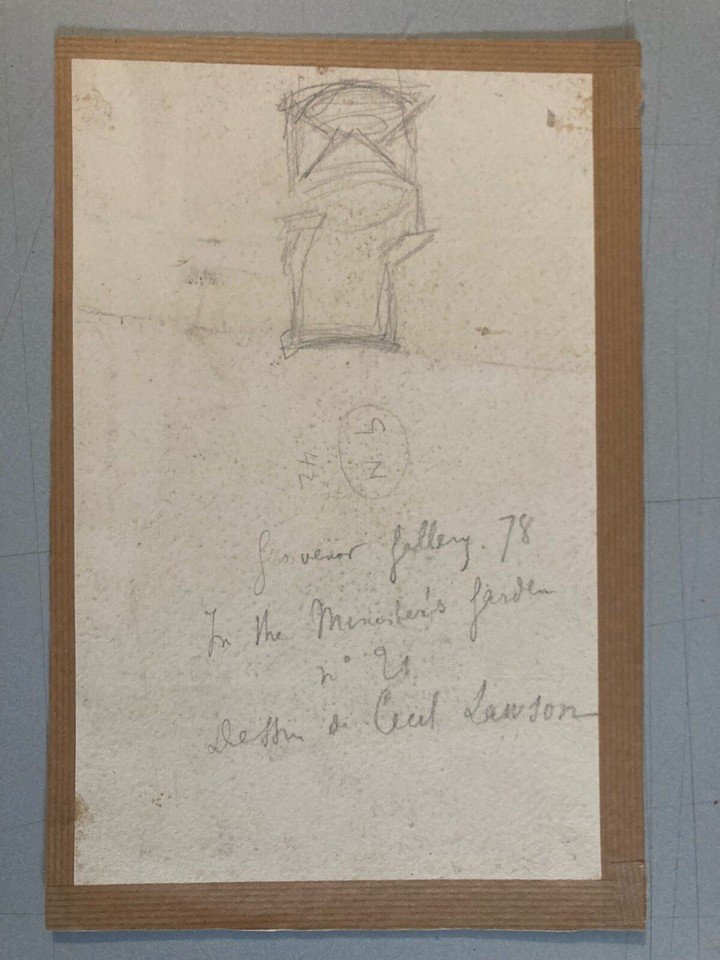 G.N
42
Grosvenor Gallery. 78
In the Minister's Garden
n° 21
Dessin de Cecil Lawson